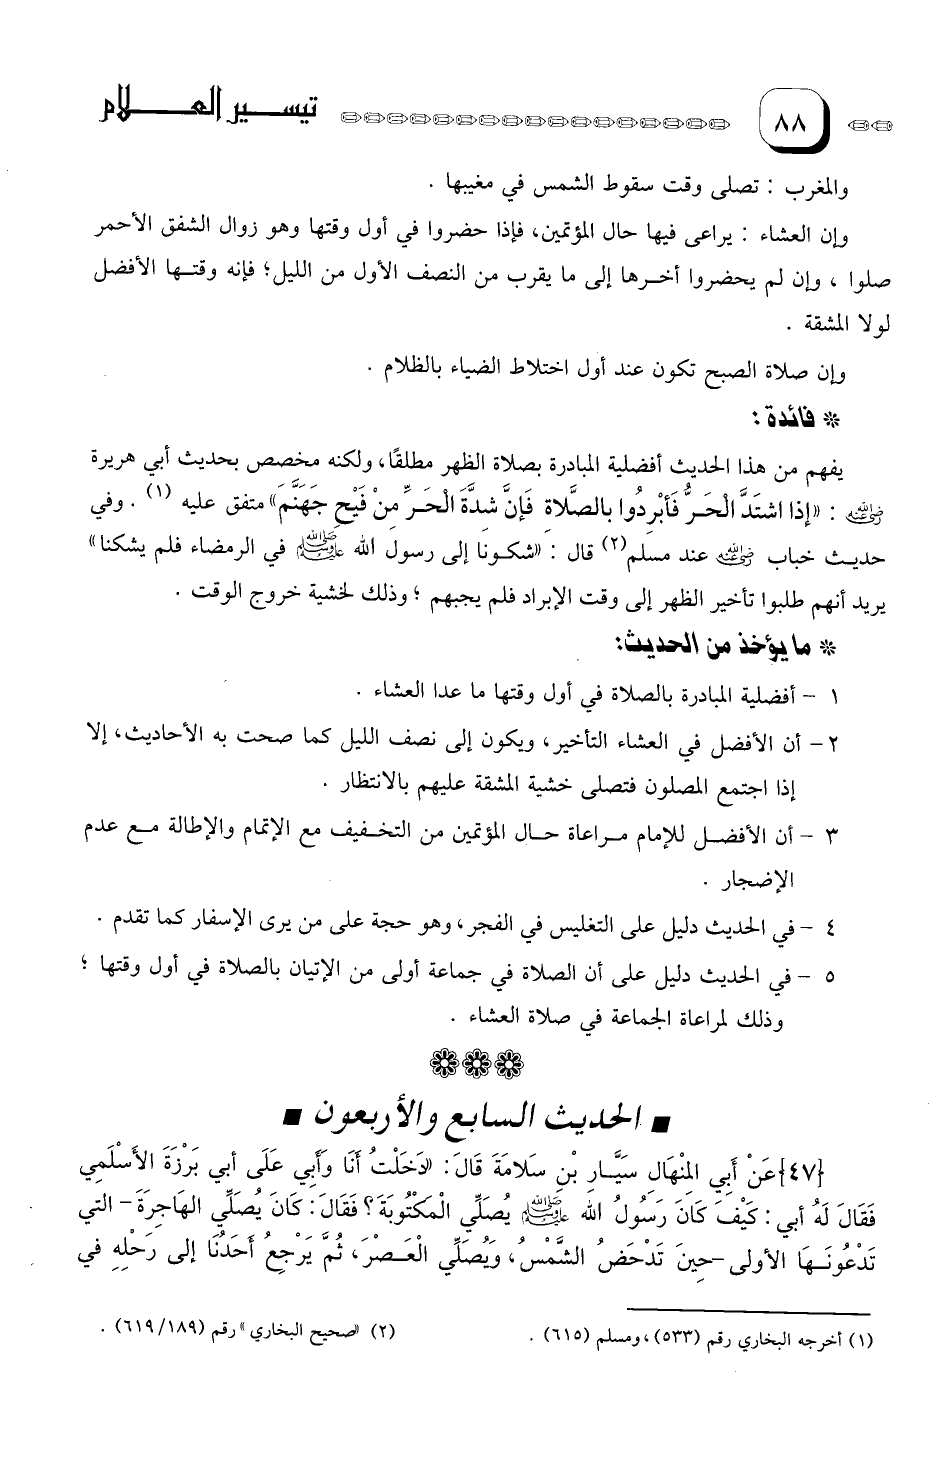 تيسير العلام
٨٨
والمغرب : تصلى وقت سقوط الشمس في مغيبها .
وإن العشاء : يراعى فيها حال المؤتمين، فإذا حضروا في أول وقتها وهو زوال الشفق الأحمر
صلوا ، وإن لم يحضروا أخرها إلى ما يقرب من النصف الأول من الليل؛ فإنه وقتها الأفضل
لولا المشقة .
وإن صلاة الصبح تكون عند أول اختلاط الضياء بالظلام .
* فائدة :
يفهم من هذا الحديث أفضلية المبادرة بصلاة الظهر مطلقًا، ولكنه مخصص بحديث أبي هريرة
رضي الله عنه : «إذا اشتَدَّ الْحَرُّ فَأَبْرِدُوا بالصَّلاة فَإنَّ شدَّةَ الْحَرِّ مِنْ فَيْحِ جَهَنَّمَ» متفق عليه (١) . وفي
حديث خباب رضي الله عنه عند مسلم(٢) قال : «شكونا إلى رسول الله ﷺ في الرمضاء فلم يشكنا»
يريد أنهم طلبوا تأخير الظهر إلى وقت الإبراد فلم يجبهم ؛ وذلك لخشية خروج الوقت .
* ما يؤخذ من الحديث:
١ - أفضلية المبادرة بالصلاة في أول وقتها ما عدا العشاء .
٢- أن الأفضل في العشاء التأخير، ويكون إلى نصف الليل كما صحت به الأحاديث، إلا
إذا اجتمع المصلون فتصلى خشية المشقة عليهم بالانتظار .
٣ - أن الأفضل للإمام مراعاة حال المؤتمين من التخفيف مع الإتمام والإطالة مع عدم
الإضجار .
٤ - في الحديث دليل على التغليس في الفجر، وهو حجة على من يرى الإسفار كما تقدم .
٥ - في الحديث دليل على أن الصلاة في جماعة أولى من الإتيان بالصلاة في أول وقتها ؛
وذلك لمراعاة الجماعة في صلاة العشاء .
■ الحديث السابع والأربعون ■
{٤٧}عَنْ أَبِي الْمِنْهَالِ سَيَّارِ بْنِ سَلَامَةَ قَالَ: «دَخَلْتُ أَنَا وَأَبي عَلَى أَبي بَرْزَةَ الأَسْلَمي
فَقَالَ لَهُ أبي : كَيْفَ كَانَ رَسُولُ الله ﷺ يُصَلِّي الْمَكْتُوبَةَ ؟ فَقَالَ: كَانَ يُصَلِّي الهَاجِرَةَ - التي
تَدْعُونَـهَا الأولى -حِينَ تَدْحَضُ الشَّمْسُ، وَيُصَلِّي الْعَصْرَ، ثُمَّ يَرْجِعُ أَحَدُنَا إلى رَحْلِهِ في
(١) أخرجه البخاري رقم (٥٣٣)، ومسلم (٦١٥) .
(٢) «صحيح البخاري» رقم (٦١٩/١٨٩) .